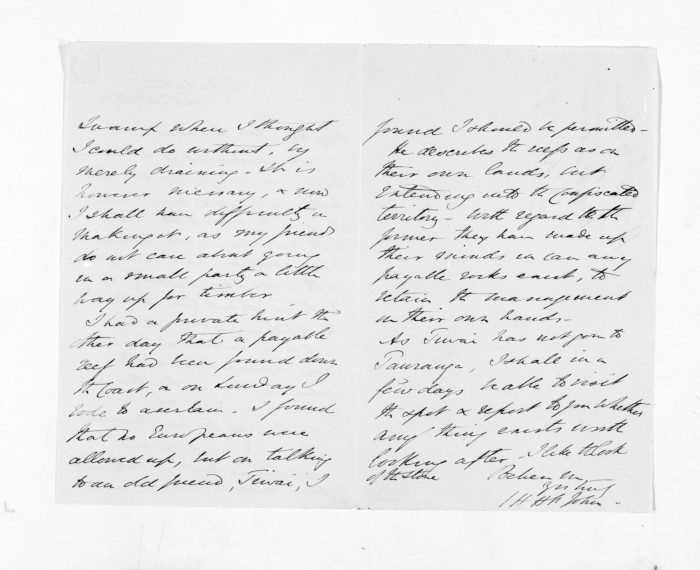 Swamp where I thought
I could do without, by
merely draining - It is
however necessary, & now
I shall have difficulty in
making it, as my friends
do not care about going
in a small party a little
way up for timber
I had a private hint the
other day that a payable
reef had been found down
the Coast, & on Sunday I
rode to ascertain - I found
that no Europeans were
allowed up, but on talking
to an old friend, Tiwai, I
found I should be permitted -
He describes the reef as on
their own lands, but
extending into the Confiscated
territory - With regard to the
former they have made up
their minds in case any
payable rocks exist, to
retain the management
in their own hands -
As Tiwai has not gone to
Tauranga, I shall in a
few days be able to visit
the spot & report to you whether
any thing exists worth
looking after. I like the look
of the stone
Believe me
yrs truly
St John -